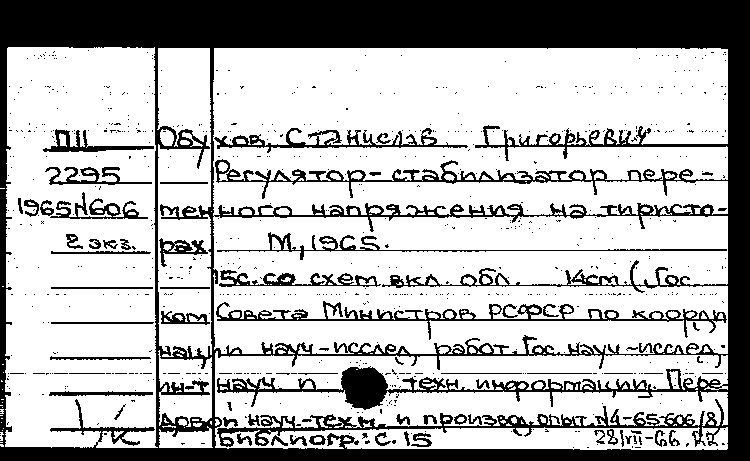 П11 Обухов, Станислав Григорьевич
2295 Регулятор-стабилизатор пере-
1965N606 менного напряжения на тиристо-
2 экз. рах. М., 1965.
15с. со схем. вкл. обл. 14см. (Гос.
ком Совета Министров РСФСР по коорди
нации науч-исслед. работ. Гос. науч-исслед.
ин-т науч. и техн. информации. Пере-
довой науч-техн. и производ. опыт. N4-65-606/8)
Библиогр.: с. 15 28/VII-66